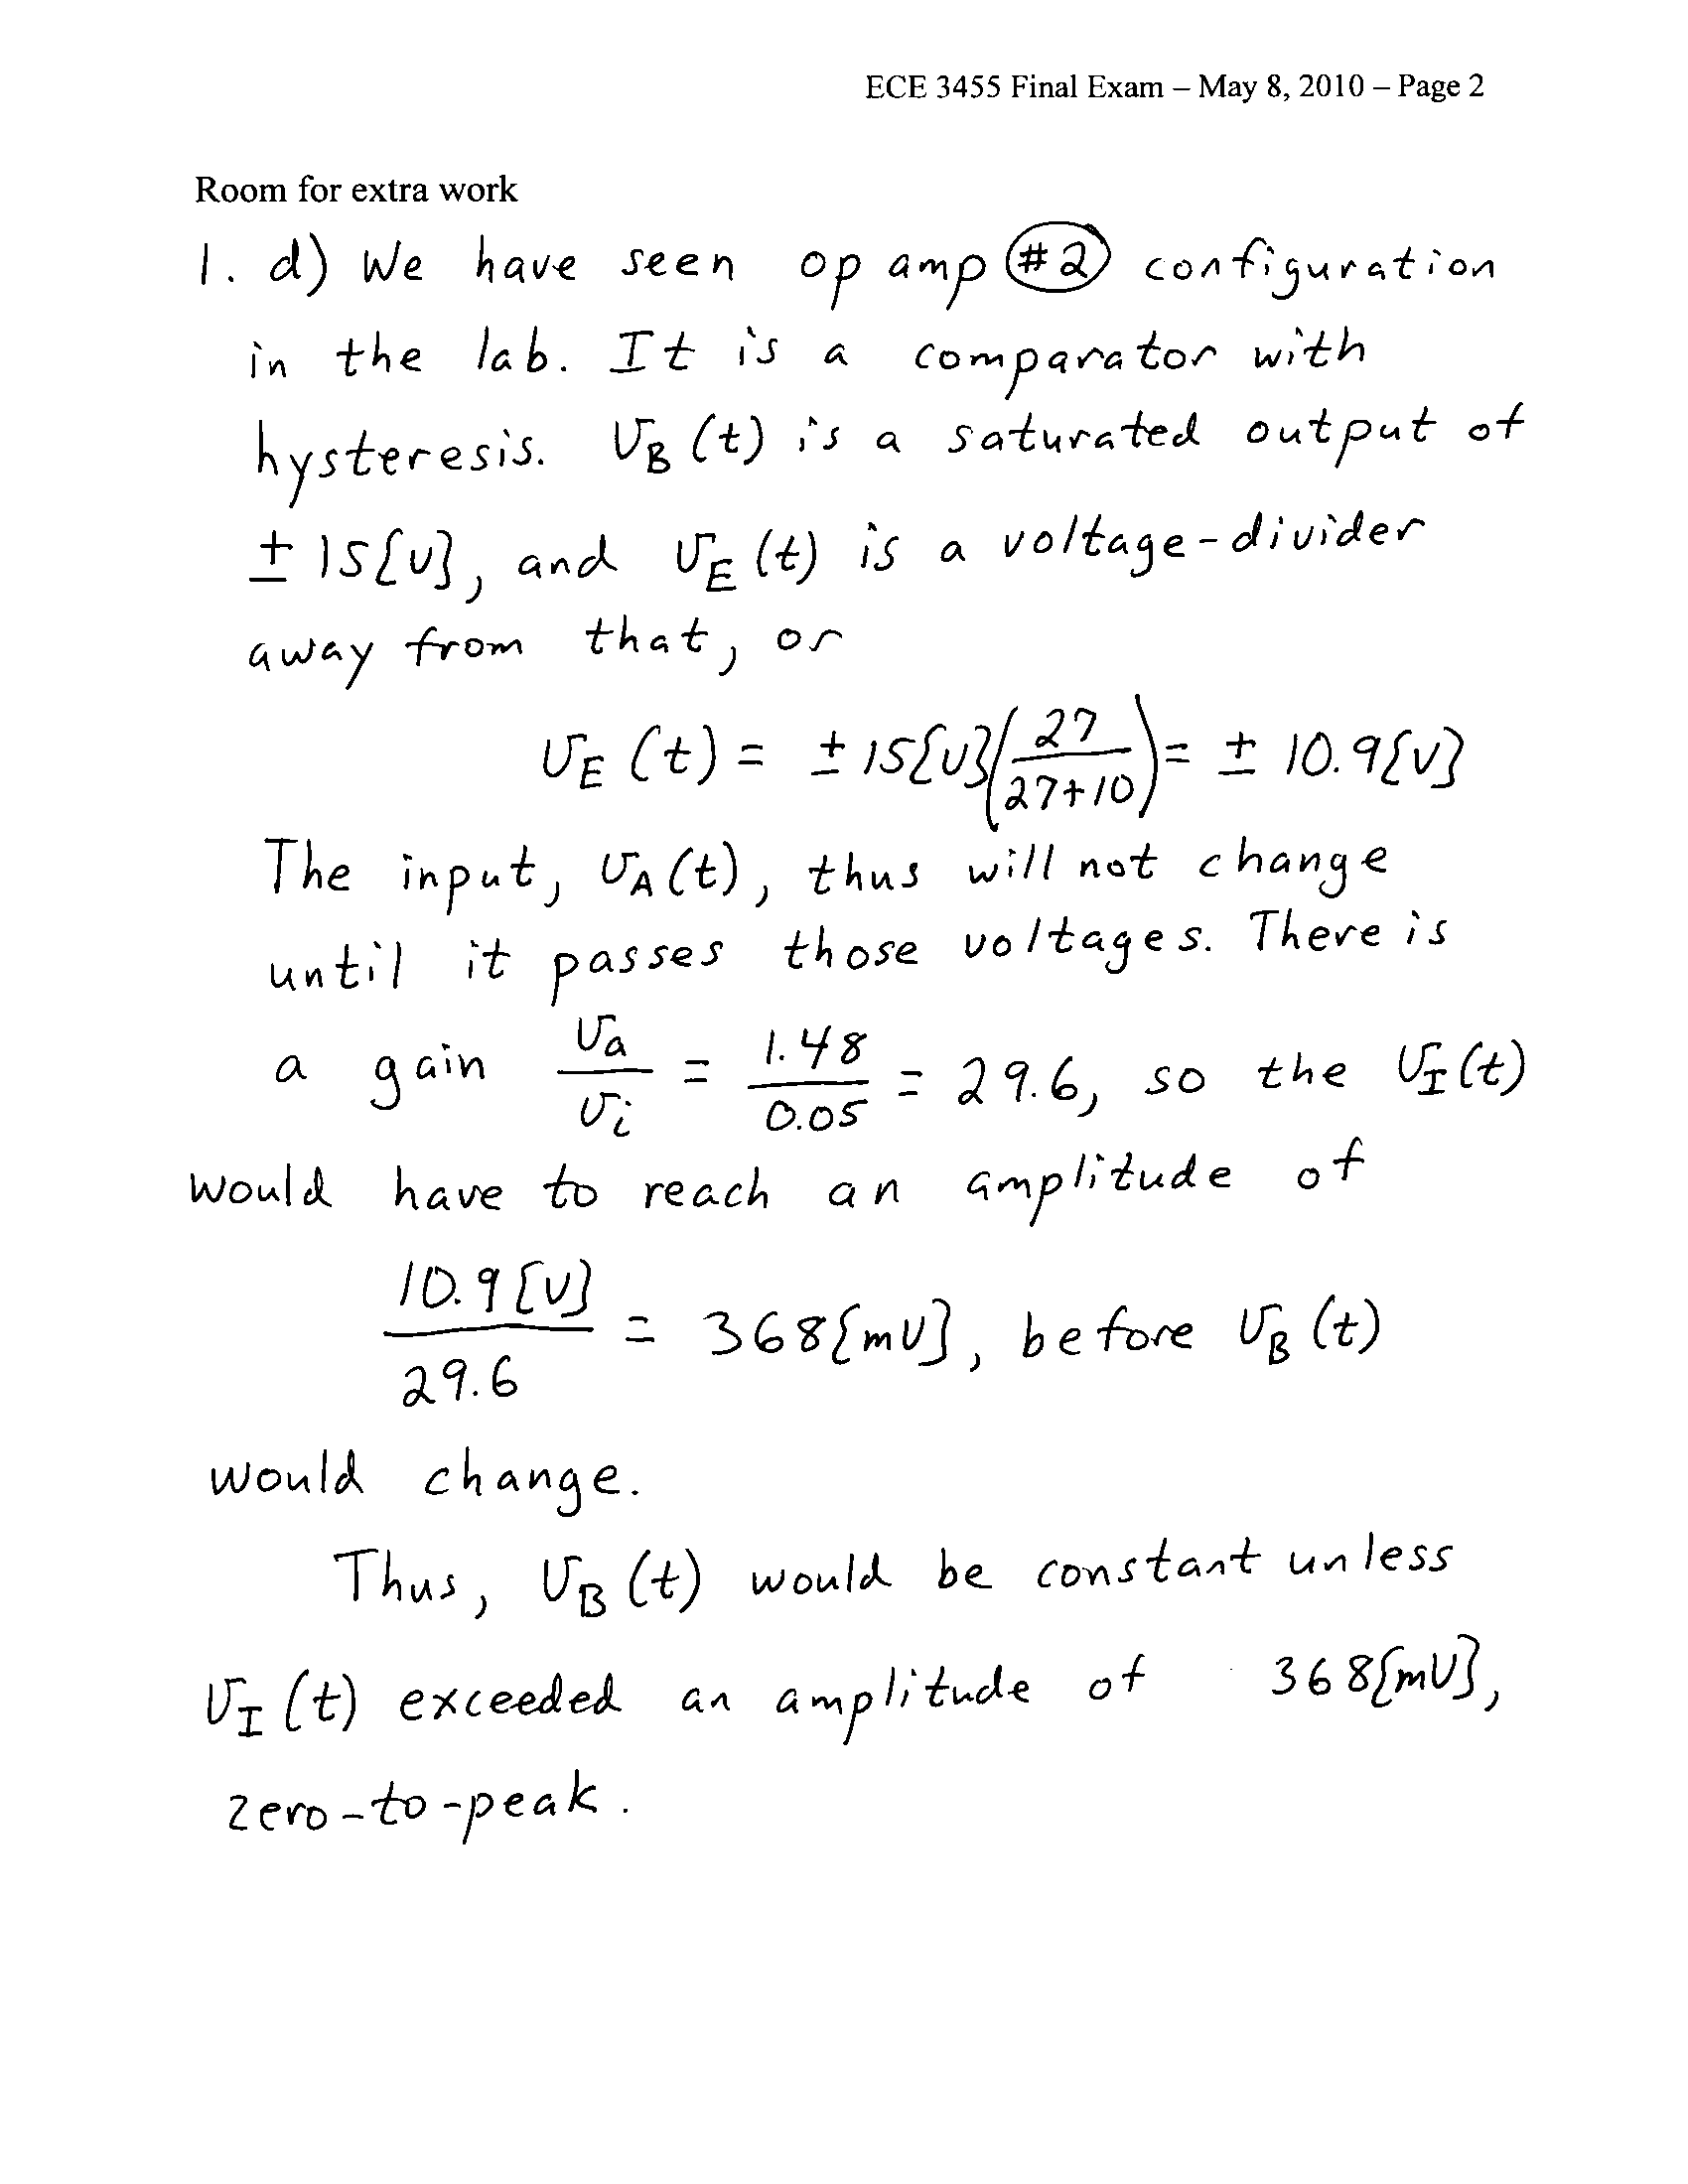 ECE 3455 Final Exam – May 8, 2010 – Page 2
Room for extra work
1. d) We have seen op amp #2 configuration
in the lab. It is a comparator with
hysteresis. v_B(t) is a saturated output of
± 15[V], and v_E(t) is a voltage-divider
away from that, or
v_E(t) = ± 15[V](27/(27+10)) = ± 10.9[V]
The input, v_A(t), thus will not change
until it passes those voltages. There is
a gain v_a/v_i = 1.48/0.05 = 29.6, so the v_I(t)
would have to reach an amplitude of
10.9[V]/29.6 = 368[mV], before v_B(t)
would change.
Thus, v_B(t) would be constant unless
v_I(t) exceeded an amplitude of 368[mV],
zero-to-peak.